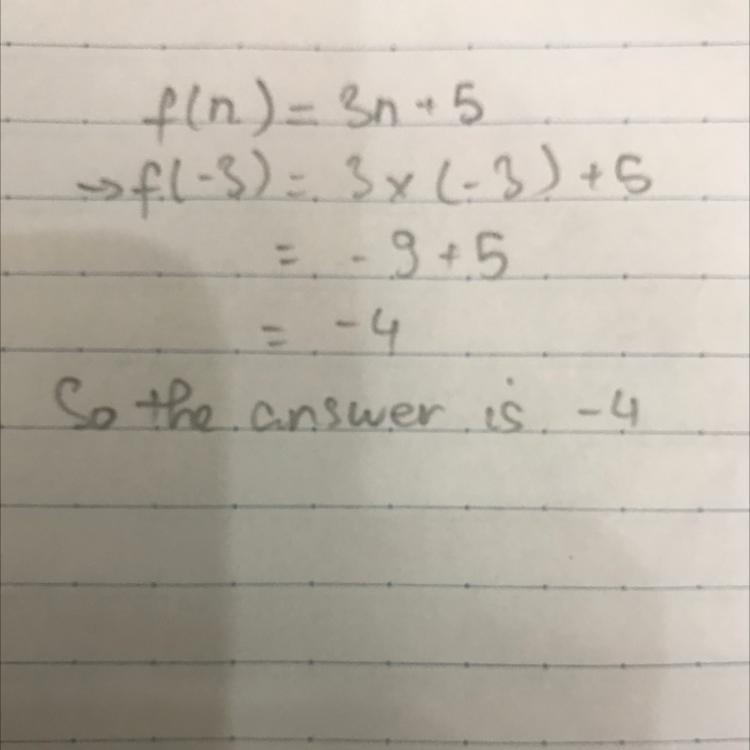 f(n) = 3n + 5
→ f(-3) = 3 × (-3) + 5
= -9 + 5
= -4
So the answer is -4